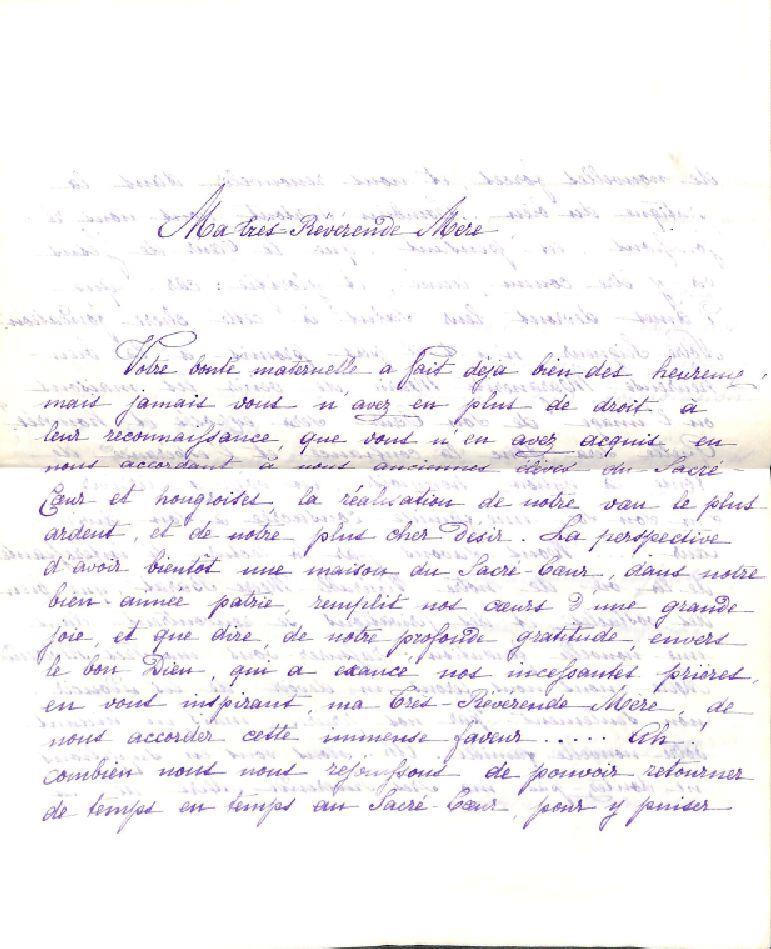 Ma très Révérende Mère
Votre bonté maternelle a fait déjà bien des heureux,
mais jamais vous n'avez en plus de droit à
leur reconnaissance, que vous n'en avez acquis en
nous accordant à nous anciennes élèves du Sacré-
Cœur et hongroises, la réalisation de notre vœu le plus
ardent, et de notre plus cher désir. La perspective
d'avoir bientôt une maison du Sacré-Cœur, dans notre
bien-aimée patrie, remplit nos cœurs d'une grande
joie, et que dire, de notre profonde gratitude, envers
le bon Dieu, qui a exaucé nos incessantes prières,
en vous inspirant, ma Très-Révérende Mère, de
nous accorder cette immense faveur ..... Ah!
combien nous nous réjouissons de pouvoir retourner
de temps en temps au Sacré-Cœur, pour y puiser